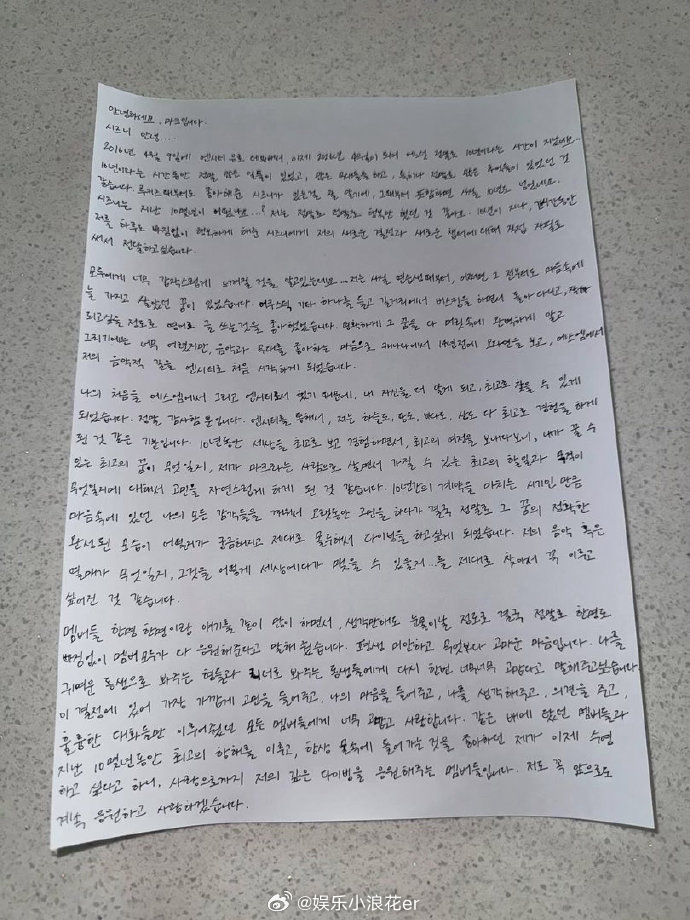 안녕하세요, 마크입니다.
시즈니 안녕....
2016년 4월 9일에 엔시티 유로 데뷔해서, 이제 2026년 4월이 되어 어느덧 정말로 10년이라는 시간이 지났네요...
10년이라는 시간동안 정말, 많은 일들이 있었고, 많은 무대들을 하고, 특히나 정말로 많은 추억들이 있었던 것
같습니다. 루키즈때부터도 좋아해준 시즈니가 있는걸 잘 알기에, 그때부터 포함하면 사실 10년도 넘었네요.
시즈니는 지난 10몇년이 어땠나요...? 저는 정말로 정말로 행복만 했던 것 같아요. 10년이 지나, 긴시간동안
저를 하루도 빠짐없이 행복하게 해준 시즈니에게 저의 새로운 결정과 새로운 챕터에 대해 직접 자필로
써서 전달하고싶습니다.
모두에게 너무 갑작스럽게 느껴질 것을 알고있는데요...저는 사실 연습생때부터, 어쩌면 그 전부터도 마음속에
늘 가지고 살았던 꿈이 있었습니다. 어쿠스틱 기타 하나를 들고 길거리에서 버스킹을 하면서 돌아다니고, 작가
되고싶을 정도로 영어로 글 쓰는것을 좋아했었습니다. 명확하게 그 꿈을 다 어린속에 완벽하게 알고
그리기에는 너무 어렸지만, 음악과 무대를 좋아하는 마음으로 캐나다에서 14년전에 오디션을 보고, 에스엠에서
저의 음악적 길을 엔시티로 처음 시작하게 되었습니다.
나의 처음을 에스엠에서 그리고 엔시티로서 했기 때문에, 내 자신을 더 알게 되고, 최고로 살을 수 있게
되었습니다. 정말 감사할 뿐입니다. 엔시티를 통해서, 저는 하늘도, 땅도, 바다도, 산도 다 최고로 경험을 하게
된 것 같은 기분입니다. 10년동안 세상을 최고로 보고 경험하면서, 최고의 여정을 보내다보니, 내가 꿀 수
있는 최고의 꿈이 무엇일지, 제가 마크라는 사람으로 살면서 가질 수 있는 최고의 할일과 목적이
무엇일지에 대해서 고민을 자연스럽게 하게 된 것 같습니다. 10년간의 계약을 마치는 시기인 만큼
마음속에 있던 나의 모든 감각들을 깨워서 오랫동안 고민을 하다가 결국 정말로 그 꿈의 정확한
완성된 모습이 어떨지가 궁금해지고 제대로 몰두해서 다이빙을 하고싶게 되었습니다. 저의 음악 혹은
열매가 무엇일지, 그것을 어떻게 세상에다가 맺을 수 있을지...를 제대로 찾아서 꼭 이루고
싶어진 것 같습니다.
멤버들 한명 한명이랑 얘기를 같이 많이 하면서, 생각만해도 눈물이날 정도로 결국 정말로 한명도
빠짐없이 멤버 모두가 다 응원해준다고 말해 줬습니다. 표현생 미안하고 무엇보다 고마운 마음입니다. 나를
귀여운 동생으로 봐주는 형들과 리더로 봐주는 동생들에게 다시 한번 너무너무 고맙다고 말해주고싶습니다
이 결정에 있어 가장 가깝게 고민을 들어주고, 나의 마음을 들어주고, 나를 생각해주고, 의견을 주고,
훌륭한 대화들만 이루어줬던 모든 멤버들에게 너무 고맙고 사랑합니다. 같은 배에 탔던 멤버들과
지난 10몇년동안 최고의 항해를 이루고, 항상 물속에 들어가는 것을 좋아하던 제가 이제 수영
하고 싶다고 하니, 사랑으로까지 저의 깊은 다이빙을 응원해주는 멤버들입니다. 저도 꼭 앞으로도
계속 응원하고 사랑하겠습니다.
@娱乐小浪花er